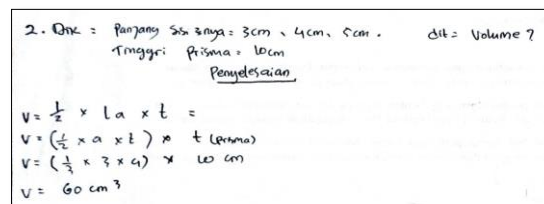 2. Dik : Panjang sisi 3nya = 3cm, 4cm, 5cm. dit = Volume ?
Tinggi Prisma = 10cm
Penyelesaian
V = 1/2 × La × t =
V = (1/2 × a × t) × t (Prisma)
V = (1/3 × 3 × 4) × 10 cm
V = 60 cm³